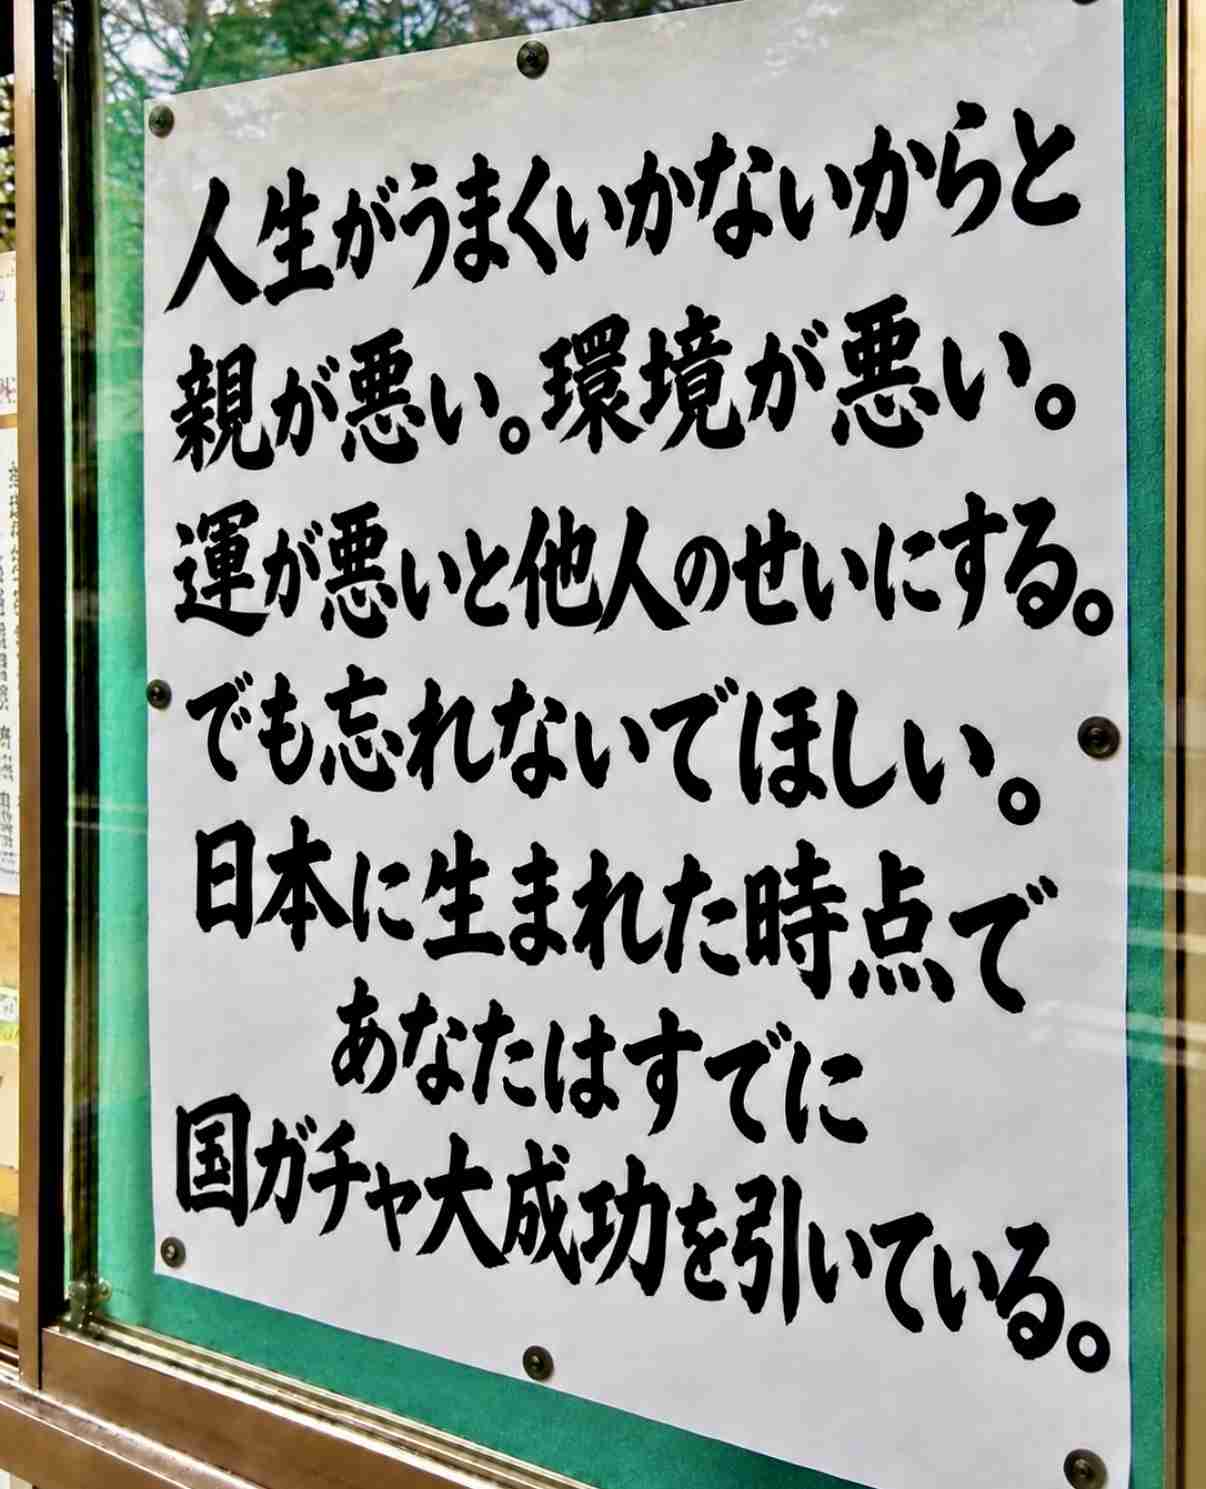 人生がうまくいかないからと
親が悪い。環境が悪い。
運が悪いと他人のせいにする。
でも忘れないでほしい。
日本に生まれた時点で
あなたはすでに
国ガチャ大成功を引いている。